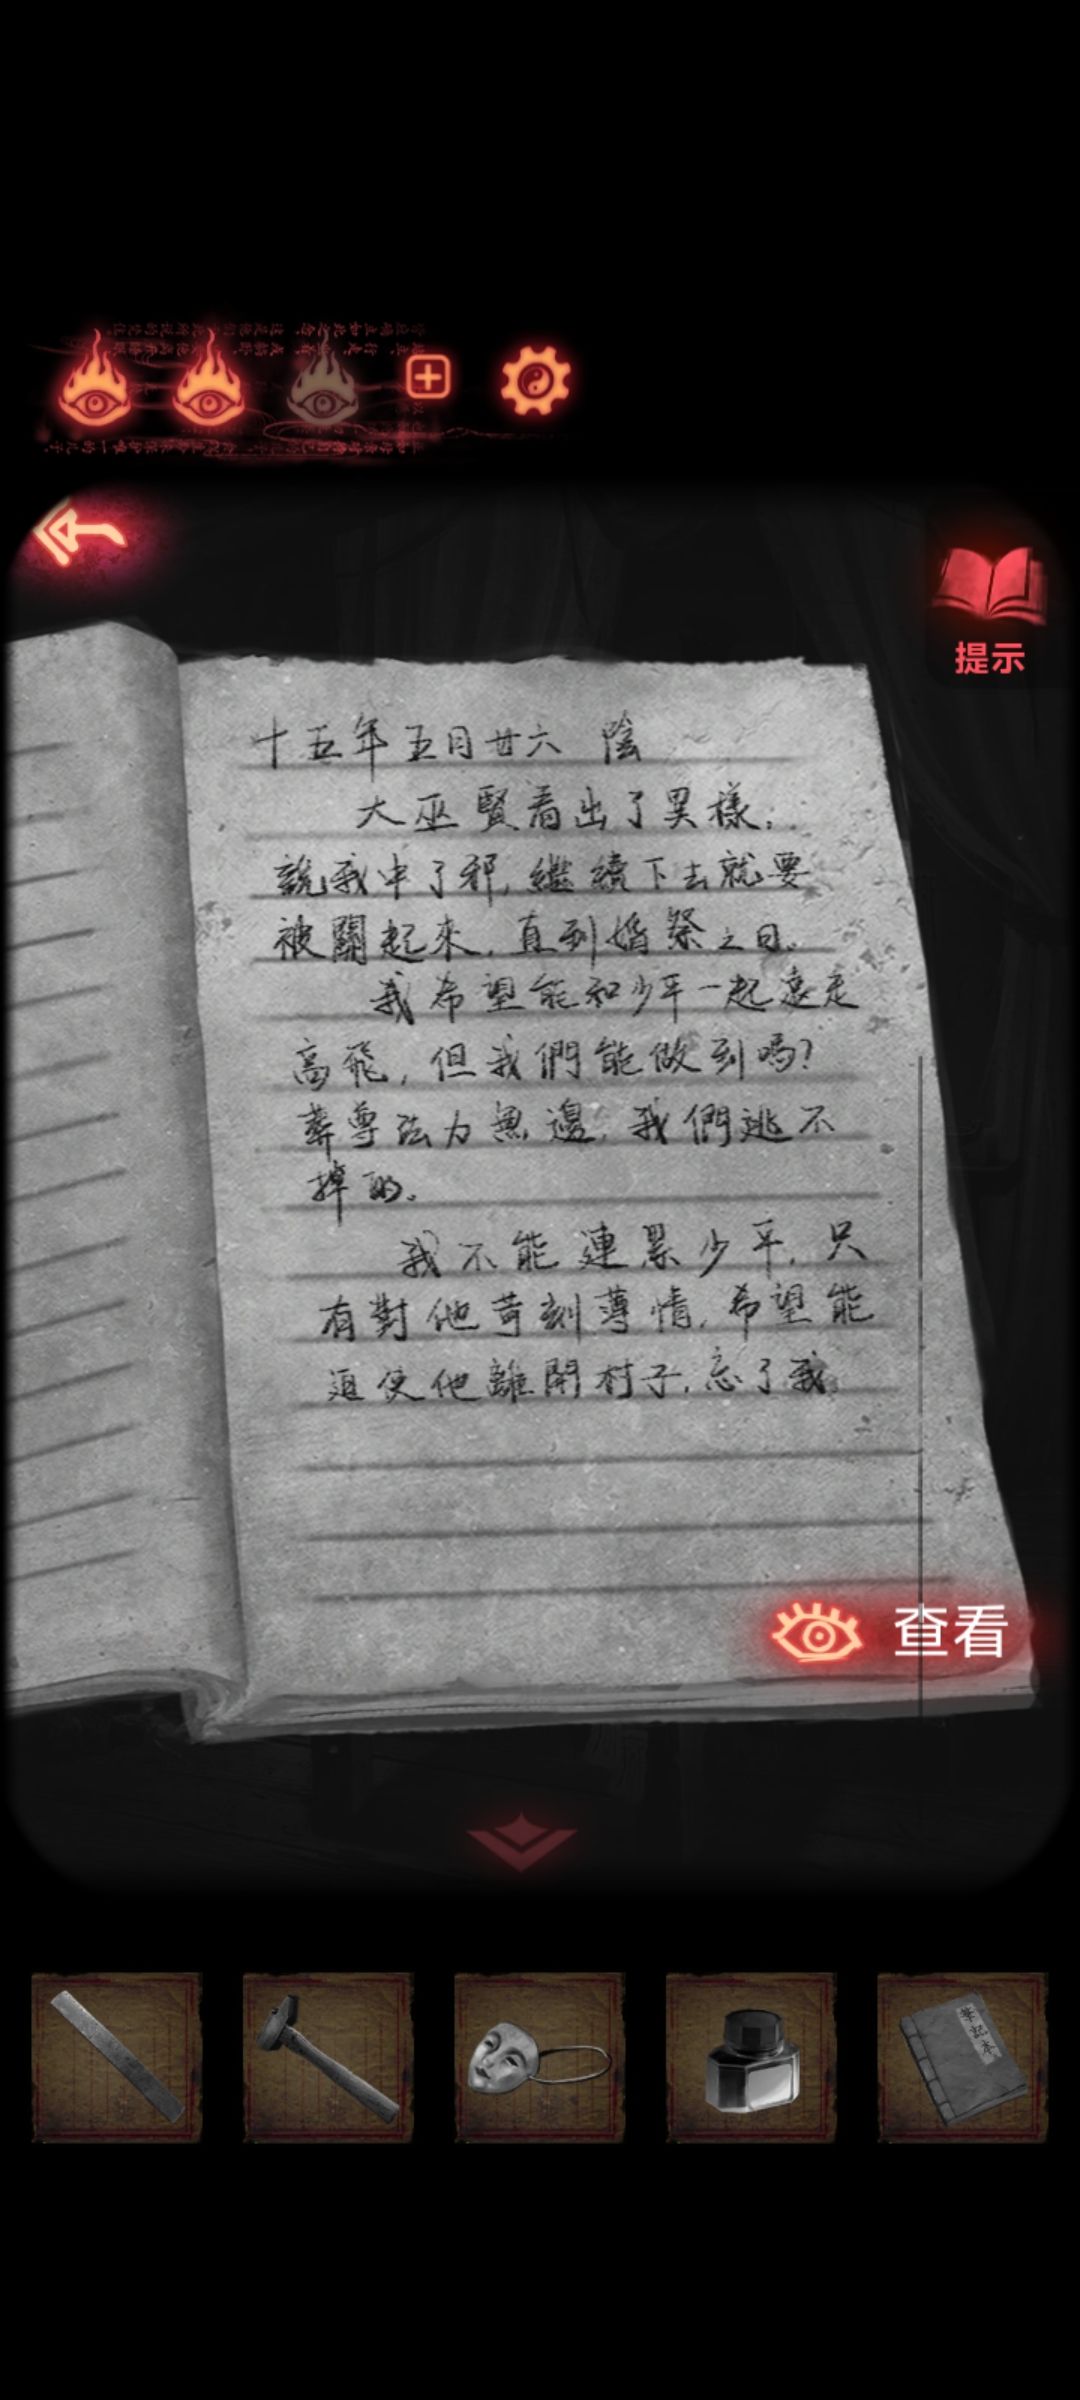 提示
十五年五月廿六 陰
大巫賢看出了異樣,
說我中了邪,繼續下去就要
被關起來,直到婚祭之日。
我希望能和少平一起遠走
高飛,但我們能做到嗎?
葬尊法力無邊,我們逃不
掉的。
我不能連累少平,只
有對他苛刻薄情,希望能
逼使他離開村子,忘了我。
查看
筆記本